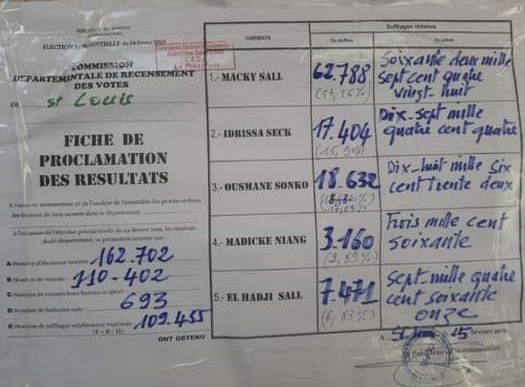 ELECTION PRESIDENTIELLE du 24 février 2019
COMMISSION
DEPARTEMENTALE DE RECENSEMENT
DES VOTES
DE St Louis
FICHE DE
PROCLAMATION
DES RESULTATS
A l'issue du recensement et de l'analyse de l'ensemble des procès-verbaux
des bureaux de vote ouverts dans le département
à l'occasion de l'élection présidentielle du 24 février 2019, les résultats
dudit département, se présentent comme suit :
A Nombre d'électeurs inscrits 162.702
B Nombre de votants 110.402
C Nombre de votants hors bureau originel
D Nombre de bulletins nuls 693
E Nombre de suffrages valablement exprimés 109.455
ONT OBTENU
CANDIDATS
Suffrages obtenus
En chiffres
En lettres
1.- MACKY SALL
62.788
Soixante deux mille
sept cent quatre
vingt huit
2.- IDRISSA SECK
17.404
(15,90%)
Dix-sept mille
quatre cent quatre
3.- OUSMANE SONKO
18.632
Dix-huit mille six
cent trente deux
4.- MADICKE NIANG
3.160
(2,89%)
Trois mille cent
soixante
5.- EL HADJI SALL
7.471
(6,83%)
Sept mille quatre
cent soixante
onze
A St Louis 25 février 2019